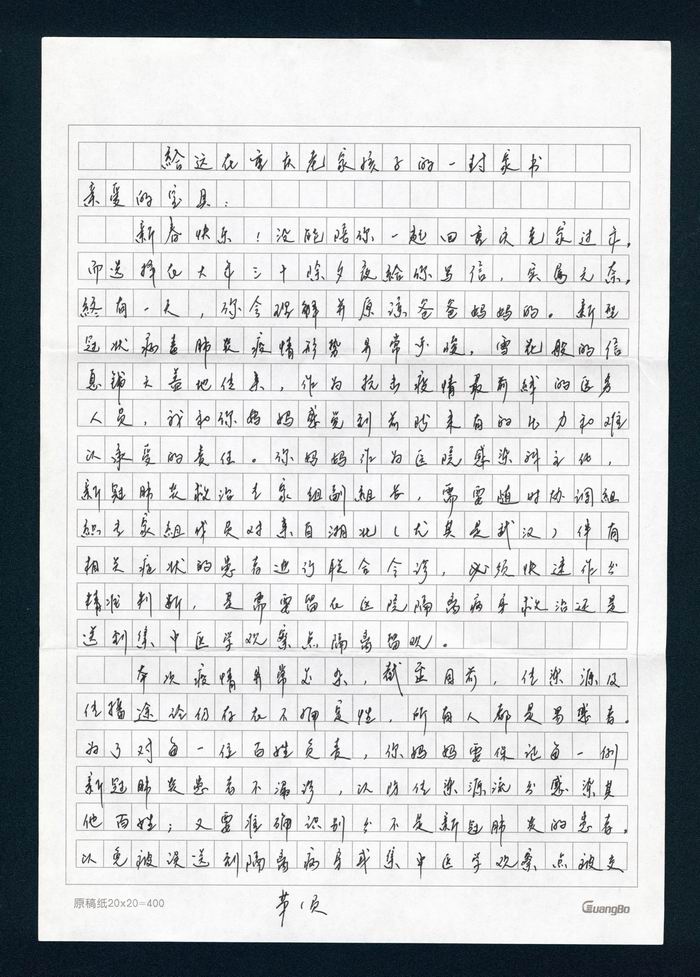 给远在重庆老家孩子的一封家书
亲爱的宝贝：
新春快乐！没能陪你一起回重庆老家过年，
而选择在大年三十除夕夜给你写信，实属无奈。
终有一天，你会理解并原谅爸爸妈妈的。新型
冠状病毒肺炎疫情形势异常严峻，雪花般的信
息铺天盖地传来，作为抗击疫情最前线的医务
人员，我和你妈妈感觉到前所未有的压力和难
以承受的责任。你妈妈作为医院感染科主任，
新冠肺炎救治专家组副组长，需要随时协调组
织专家组成员对来自湖北（尤其是武汉）伴有
相关症状的患者进行联合会诊，必须快速作出
精准判断，是需要留在医院隔离病房救治还是
送到集中医学观察点隔离留观。
本次疫情异常复杂，截至目前，传染源及
传播途径仍存在不确定性，所有人都是易感者。
为了对每一位百姓负责，你妈妈要保证每一例
新冠肺炎患者不漏诊，以防传染源流出感染其
他百姓；又要准确识别出不是新冠肺炎的患者，
以免被误送到隔离病房或集中医学观察点被交
原稿纸20x20=400
第1页
GuangBo